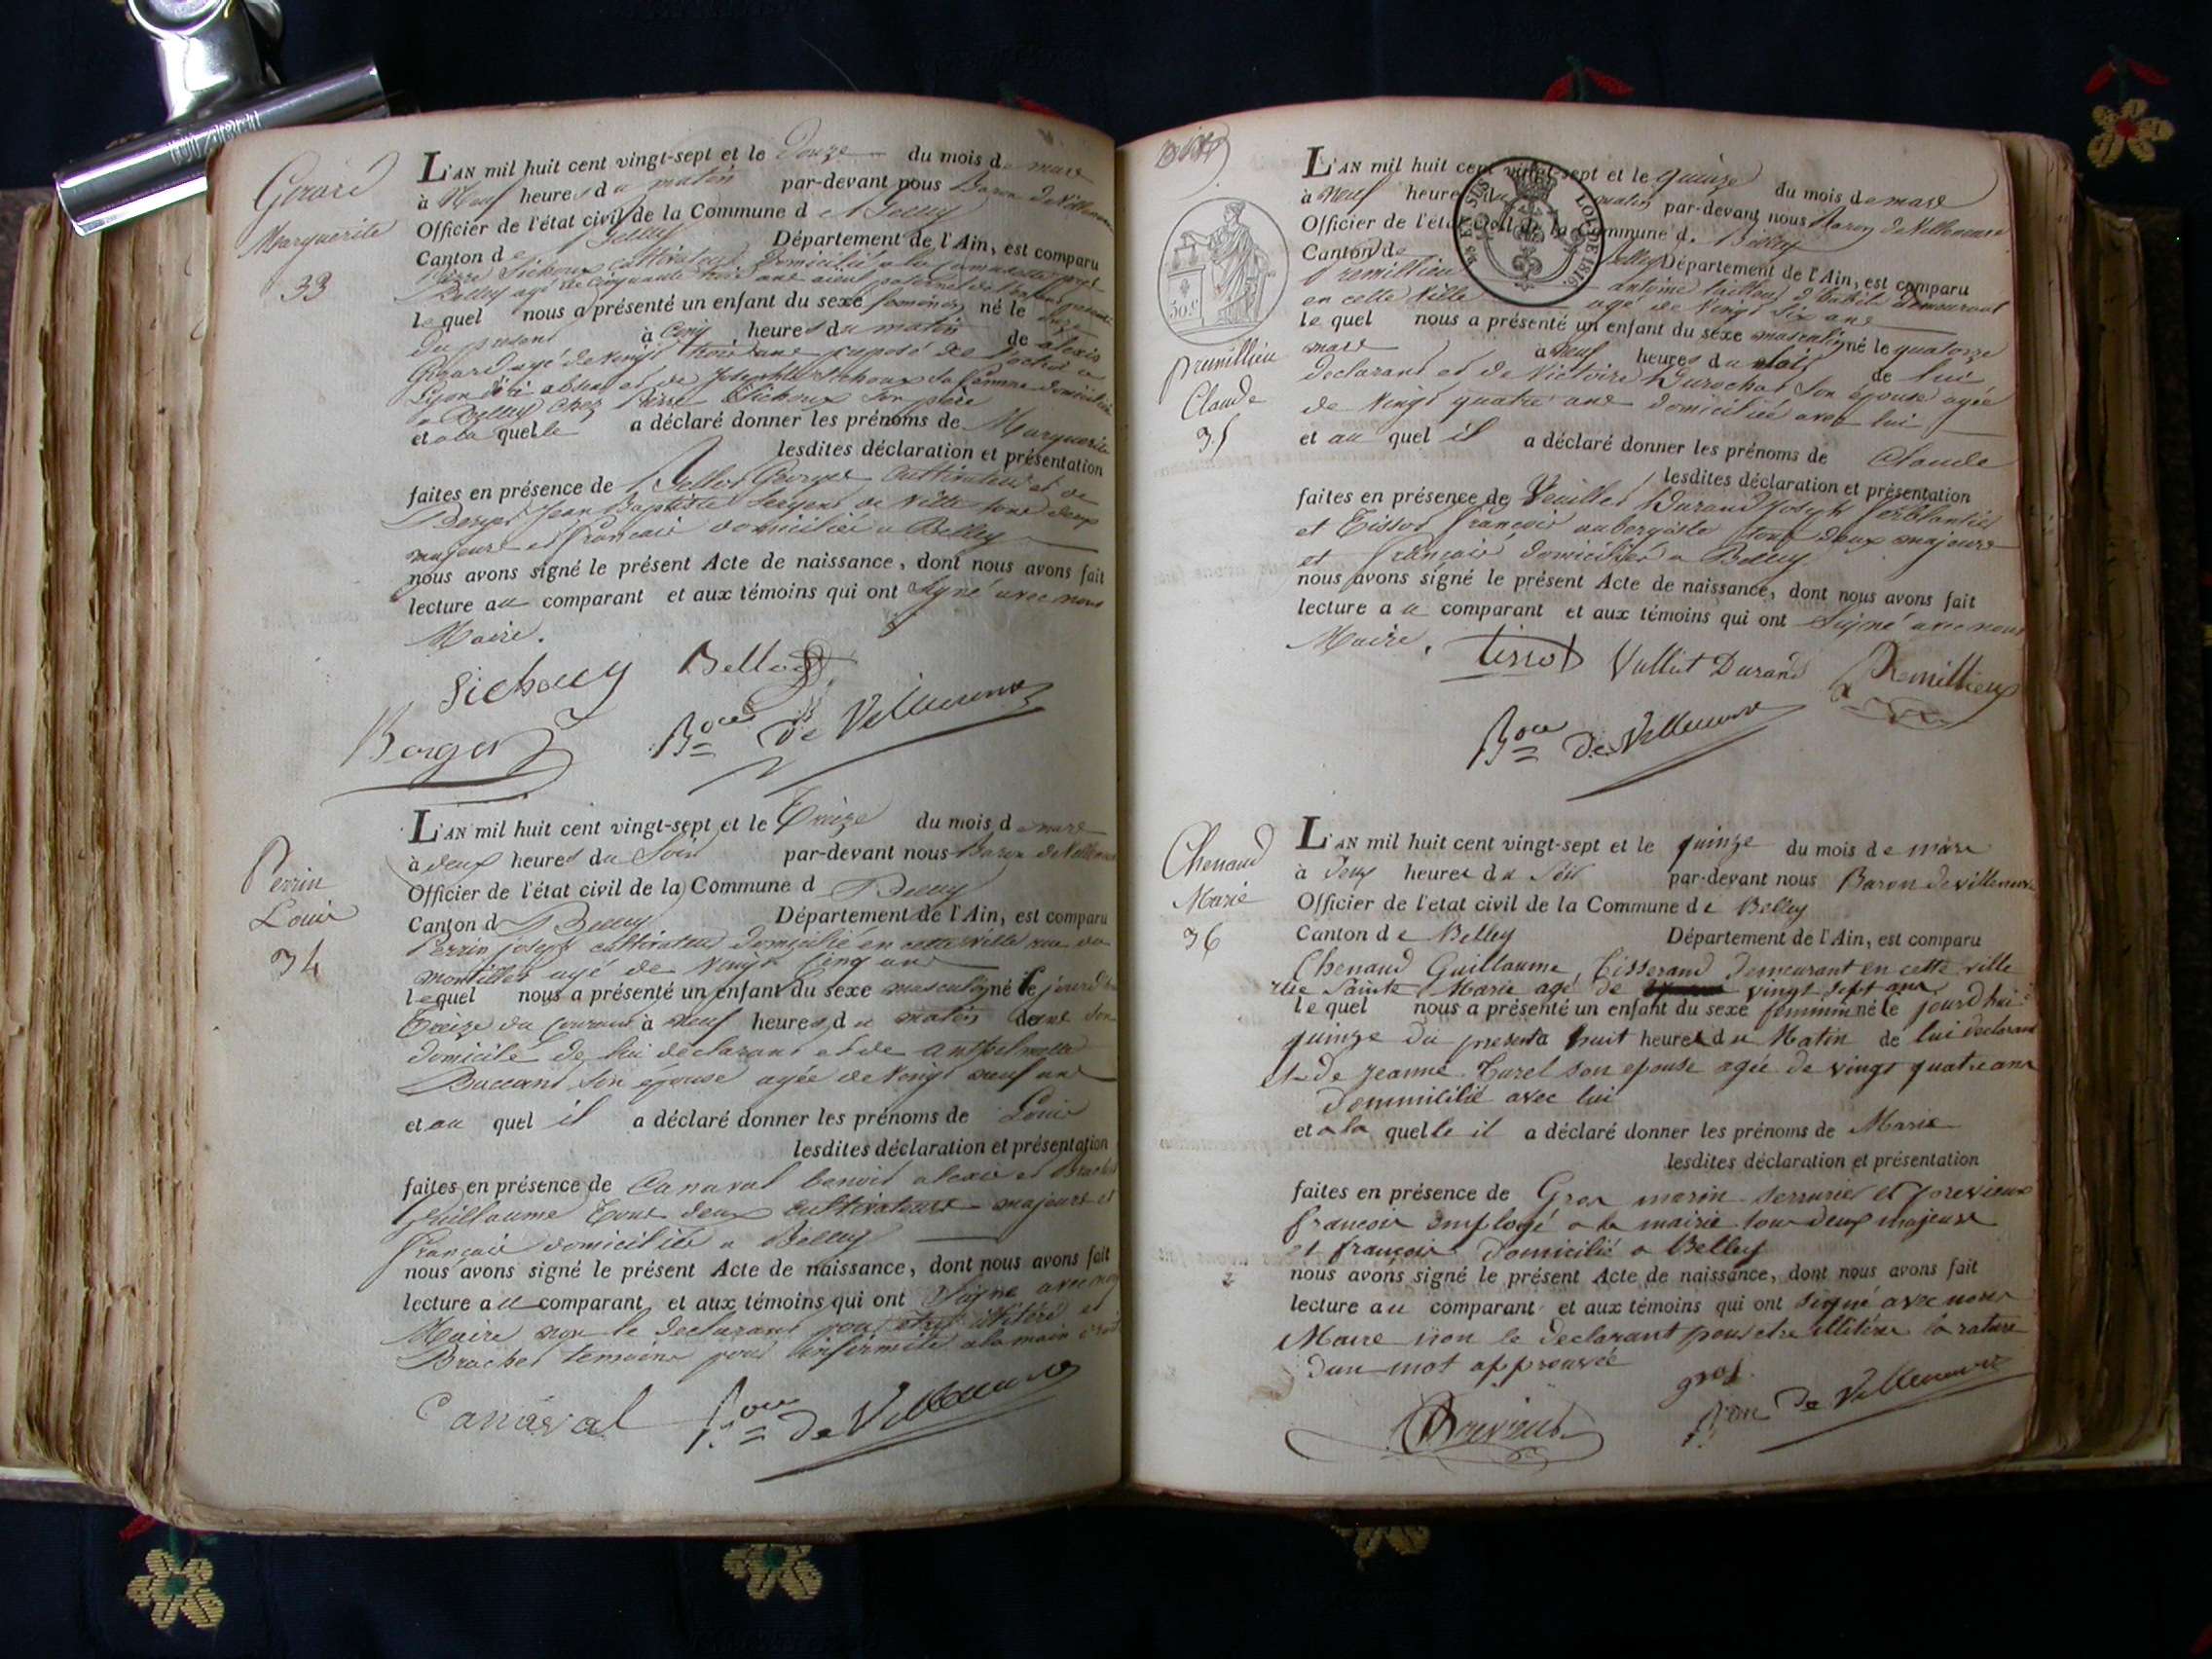 Girard
Marguerite
33
L'AN mil huit cent vingt-sept et le Douze du mois de mars
à Neuf heures du matin par-devant nous Baron de Villeneuve
Officier de l'état civil de la Commune de Belley
Canton de Belley Département de l'Ain, est comparu
Pierre Sichoux cultivateur domicilié à la
Belley agé de Cinquante trois ans ayeul paternel de l'enfant
lequel nous a présenté un enfant du sexe feminin né le onze
du present à Cinq heures du matin de alexis
Girard agé de vingt trois ans preposé de l'octroi a
Lyon absent et de Sichoux sa femme domiciliée
a Belley chez Pierre Sichoux son pere
et a la quelle a déclaré donner les prénoms de Marguerite
lesdites déclaration et présentation
faites en présence de Bellod George Cultivateur et de
Berger Jean Baptiste Sergent de Ville tous deux
majeurs et francais domiciliés a Belley
nous avons signé le présent Acte de naissance, dont nous avons fait
lecture au comparant et aux témoins qui ont signé avec nous
Maire.
Sichoux Bellod
Berger Bon de Villeneuve
Perrin
Louis
34
L'AN mil huit cent vingt-sept et le Treize du mois de mars
à deux heures du Soir par-devant nous Baron de Villeneuve
Officier de l'état civil de la Commune d Belley
Canton d Belley Département de l'Ain, est comparu
Perrin joseph cultivateur domicilié en cette ville rue du
montillet agé de vingt Cinq ans
lequel nous a présenté un enfant du sexe masculin né le jourd'hui
Treize du Courant à neuf heures du matin dans son
domicile de lui déclarant et de anthelmette
Buccand son épouse agée de vingt neuf ans
et au quel il a déclaré donner les prénoms de Louis
lesdites déclaration et présentation
faites en présence de Canaval benoit alexis et Brachet
Guillaume Tous deux cultivateurs majeurs et
français domiciliés a Belley
nous avons signé le présent Acte de naissance, dont nous avons fait
lecture au comparant et aux témoins qui ont Signé avec nous
Maire non le declarant pour etre illitéré et
Brachet temoins pour infirmité a la main droite
Canaval Bon de Villeneuve
L'AN mil huit cent vingt-sept et le quinze du mois de mars
à Neuf heures du matin par-devant nous Baron de Villeneuve
Officier de l'état civil de la Commune d. Belley
Canton de Belley Département de l'Ain, est comparu
Premillieu antoine tailleur d'habits demeurant
en cette ville agé de vingt Six ans
le quel nous a présenté un enfant du sexe masculin né le quatorze
mars à Neuf heures du Soir de lui
declarant et de Victoire Durochat son épouse agée
de vingt quatre ans domiciliée avec lui
et au quel il a déclaré donner les prénoms de Claude
lesdites déclaration et présentation
faites en présence de Veuillet Durand Joseph ferblantier
et Tissot françois aubergiste tous deux majeurs
et français domiciliés a Belley
nous avons signé le présent Acte de naissance, dont nous avons fait
lecture au comparant et aux témoins qui ont Signé avec nous
Maire.
50.c
LOI DE 1816.
Premillieu
Claude
35
tissot Premillieu
Bon de Villeneuve
Chenaud
Marie
36
L'AN mil huit cent vingt-sept et le quinze du mois de mars
à Deux heures du Soir par-devant nous Baron de villeneuve
Officier de l'etat civil de la Commune de Belley
Canton de Belley Département de l'Ain, est comparu
Chenaud Guillaume, tisserand demeurant en cette ville
rue Sainte Marie agé de vingt sept ans
le quel nous a présenté un enfant du sexe feminin né le jourd'hui
quinze du present à huit heures du Matin de lui declarant
et de jeanne Turel son epouse agée de vingt quatre ans
dommicilié avec lui
et a la quelle il a déclaré donner les prénoms de Marie
lesdites déclaration et présentation
faites en présence de Gros marin serrurier et previeux
francois employé a la mairie tous deux majeurs
et francois domicilié a Belley
nous avons signé le présent Acte de naissance, dont nous avons fait
lecture au comparant et aux témoins qui ont signé avec nous
Maire non le declarant pour etre illitéré la rature
dun mot approuvée
gros
Prévieux Bon de Villeneuve